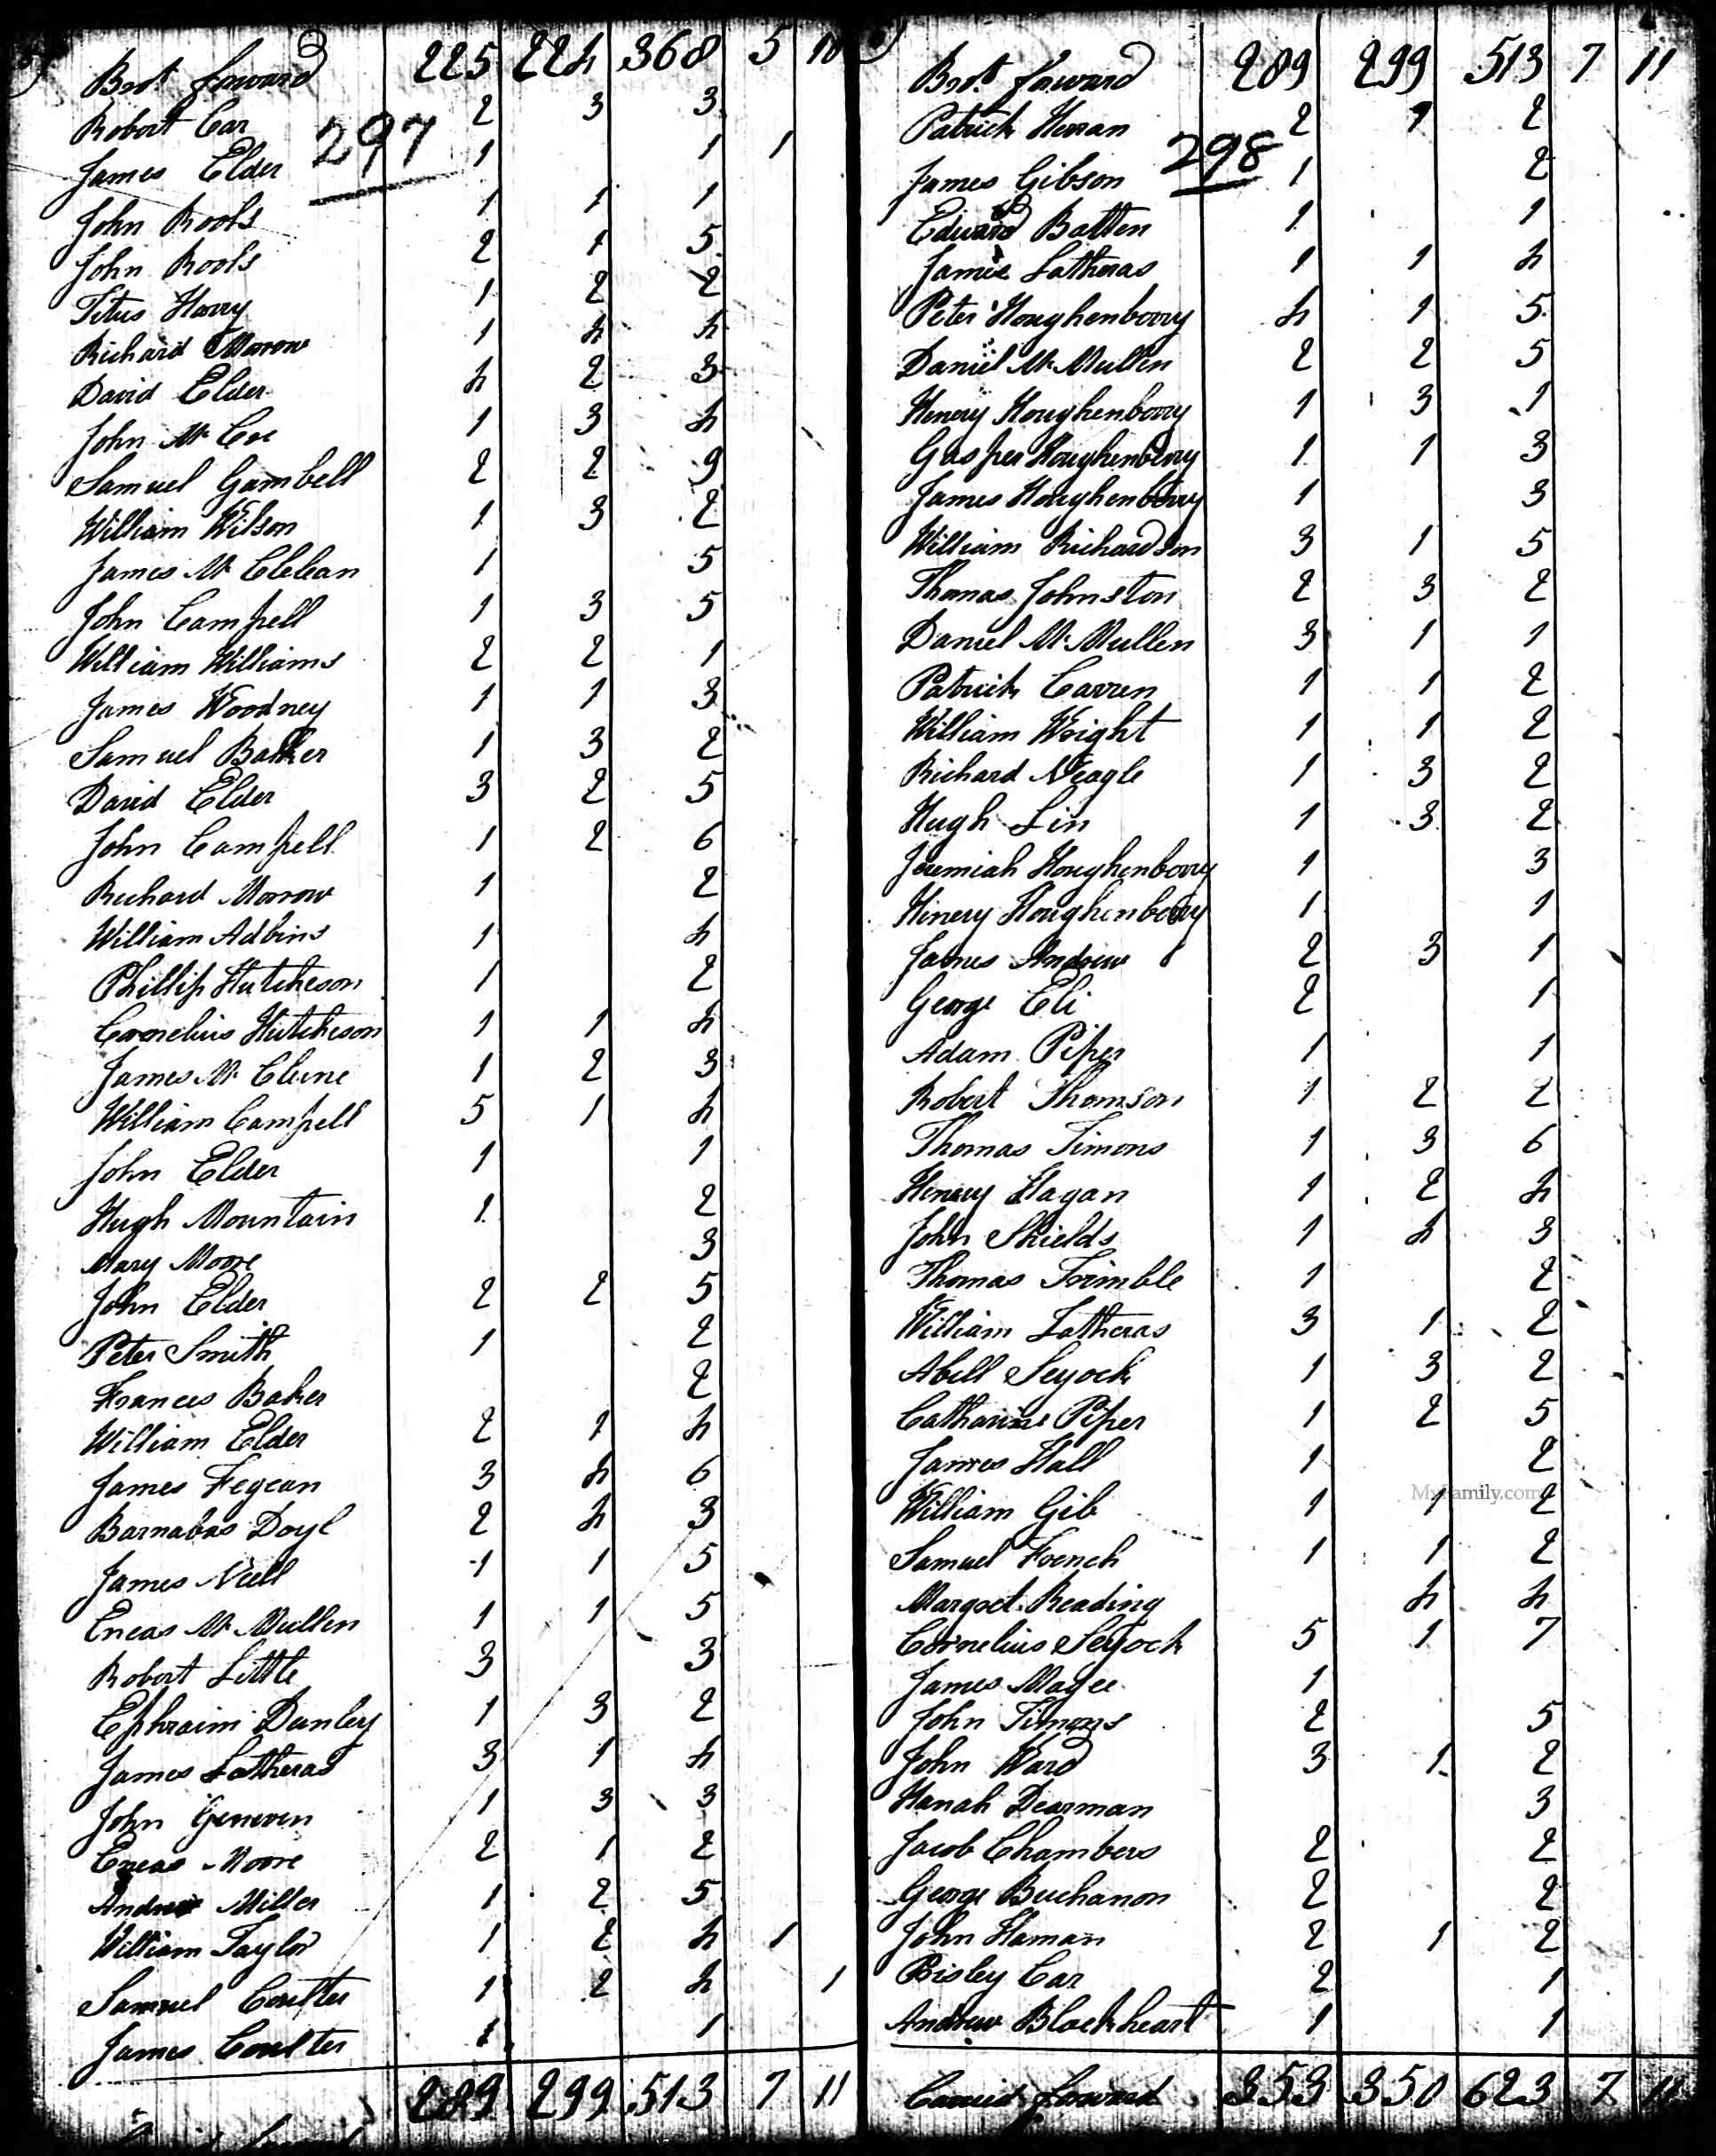 Brot. forward 225 224 368 5 10
Robert Car 2 3 3
297
James Elder 1 1 1
John Rools 1 1 1
John Rools 2 1 5
Titus Harry 1 2 2
Richard Morow 1 4 4
David Elder 4 2 3
John Mc Coe 1 3 4
Samuel Gambell 2 2 9
William Wilson 1 3 2
James Mc Clelean 1 5
John Campell 1 3 5
William Williams 2 2 1
James Woodney 1 1 3
Samuel Baker 1 3 2
David Elder 3 2 5
John Campell 1 2 6
Richard Morrow 1 2
William Adkins 1 4
Phillip Hutcheson 1 2
Cornelius Hutcheson 1 1 4
James Mc Clune 1 2 3
William Campell 5 1 4
John Elder 1 1
Hugh Mountain 1 2
Mary Moore 3
John Elder 2 2 5
Peter Smith 1 2
Frances Baker 2
William Elder 2 1 4
James Fegean 3 4 6
Barnabas Doyl 2 4 3
James Neell 1 1 5
Eneas Mc Mullen 1 1 5
Robert Little 3 3
Ephraim Dunley 1 3 2
James Lotheras 3 1 4
John Geneven 1 3 3
Eneas Moore 2 1 2
Andrew Miller 1 2 5
William Taylor 1 2 4 1
Samuel Coulter 1 2 4 1
James Coulter 1 1
289 299 513 7 11
Brot. forward 289 299 513 7 11
Patrick Herran 2 1 2
298
James Gibson 1 2
Edward Batten 1 1
James Lotheras 1 1 4
Peter Houghenberry 4 1 5
Daniel Mc Mullen 2 2 5
Henery Houghenberry 1 3 1
Gasper Houghenberry 1 1 3
James Houghenberry 1 3
William Richardson 3 1 5
Thomas Johnston 2 3 2
Daniel Mc Mullen 3 1 1
Patrick Carren 1 1 2
William Wright 1 1 2
Richard Neagle 1 3 2
Hugh Lin 1 3 2
Jeremiah Houghenberry 1 3
Hinery Houghenberry 1 1
James Andrew 2 3 1
George Eli 2 1
Adam Piper 1 1
Robert Thomson 1 2 2
Thomas Timons 1 3 6
Henery Hagan 1 2 4
John Shields 1 4 3
Thomas Trimble 1 2
William Lotheras 3 1 2
Abell Seyock 1 3 2
Catharine Piper 1 2 5
James Hall 1 2
William Gib 1 1 2
MyFamily.com
Samuel French 1 1 2
Margret Reading 4 4
Cornelius Seyock 5 1 7
James Magee 1
John Timons 2 5
John Ward 3 1 2
Hanah Dearman 3
Jacob Chambers 2 2
George Buchanon 2 2
John Haman 2 1 2
Risley Car 2 1
Andrew Blackheart 1 1
Carried forward 353 350 623 7 11